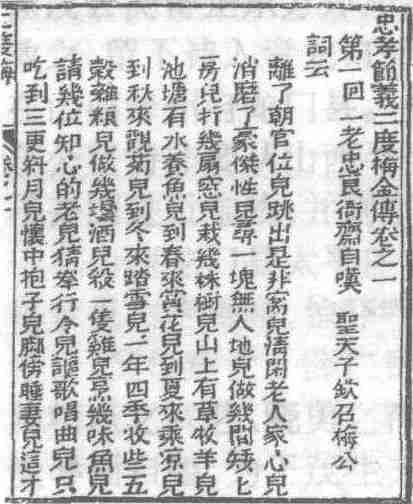 忠孝節義二度梅金傳卷之一
第一回 一老忠良衙齋自嘆 聖天子欽召梅公
詞云
離了朝官位兒跳出是非窩兒清閑老人家心兒
消磨了豪傑性兒尋一塊無人地兒做幾間矮匕
房兒打幾扇窓兒栽幾株樹兒山上有草牧羊兒
池塘有水養魚兒到春來賞花兒到夏來乘凉兒
到秋來觀菊兒到冬來踏雪兒一年四季收些五
穀雜粮兒做幾壜酒兒殺一隻雞兒烹幾味魚兒
請幾位知心的老兒猜拳行令兒謳歌唱曲兒只
吃到三更斜月兒懷中抱子兒脚傍睡妻兒這才
二度梅